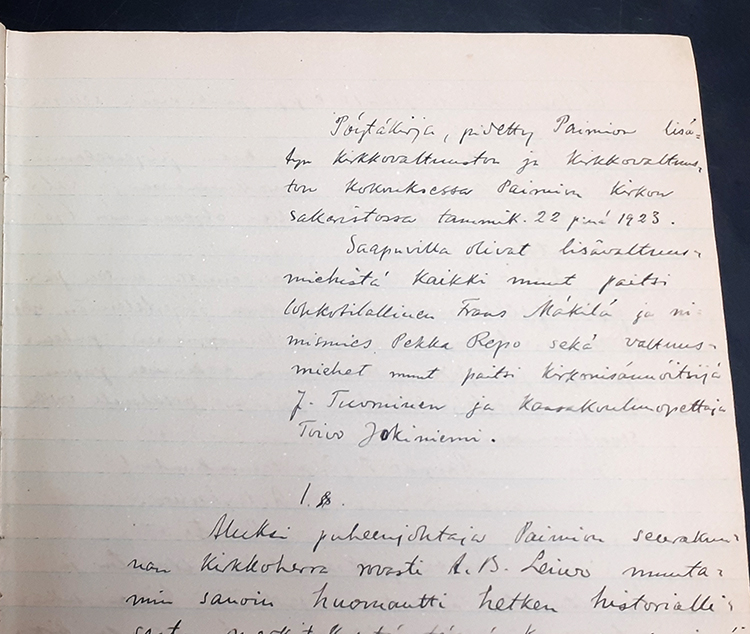 Pöytäkirja, pidetty Paimion lisä-
tyn kirkkovaltuuston ja kirkkovaltuus-
ton kokouksessa Paimion kirkon
sakaristossa tammik. 22 pnä 1923.
Saapuvilla olivat lisävaltuus-
miehistä kaikki muut paitsi
lohkotilallinen Frans Mäkilä ja ni-
mismies Pekka Repo sekä valtuus-
miehet muut paitsi kirkonisännöitsijä
J. Tuominen ja kansakoulunopettaja
Toivo Jokiniemi.
1.§.
Aluksi puheenjohtaja Paimion seurakun-
nan kirkkoherra rovasti A.B. Leino muuta-
min sanoin huomautti hetken historialli-